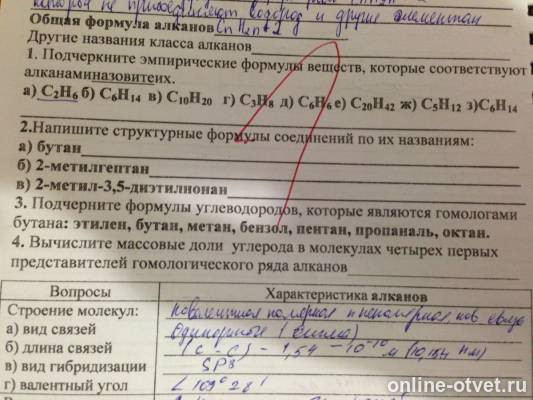 которая не присоединяют водород и другие элементам
Общая формула алканов CnH2n+2
Другие названия класса алканов
1. Подчеркните эмпирические формулы веществ, которые соответствуют
алканаминазовитеих.
а) C2H6 б) C6H14 в) C10H20 г) C3H8 д) C6H6 е) C20H42 ж) C5H12 з)C6H14
2.Напишите структурные формулы соединений по их названиям:
а) бутан
б) 2-метилгептан
в) 2-метил-3,5-диэтилнонан
3. Подчерните формулы углеводородов, которые являются гомологами
бутана: этилен, бутан, метан, бензол, пентан, пропаналь, октан.
4. Вычислите массовые доли углерода в молекулах четырех первых
представителей гомологического ряда алканов
Вопросы Характеристика алканов
Строение молекул: Ковалентная полярная и неполярная ков связь
а) вид связей Одинарные (сигма)
б) длина связей (C-C) - 1,54 - 10-10 м (0,154 нм)
в) вид гибридизации SP3
г) валентный угол ∠ 109° 28'
online-otvet.ru